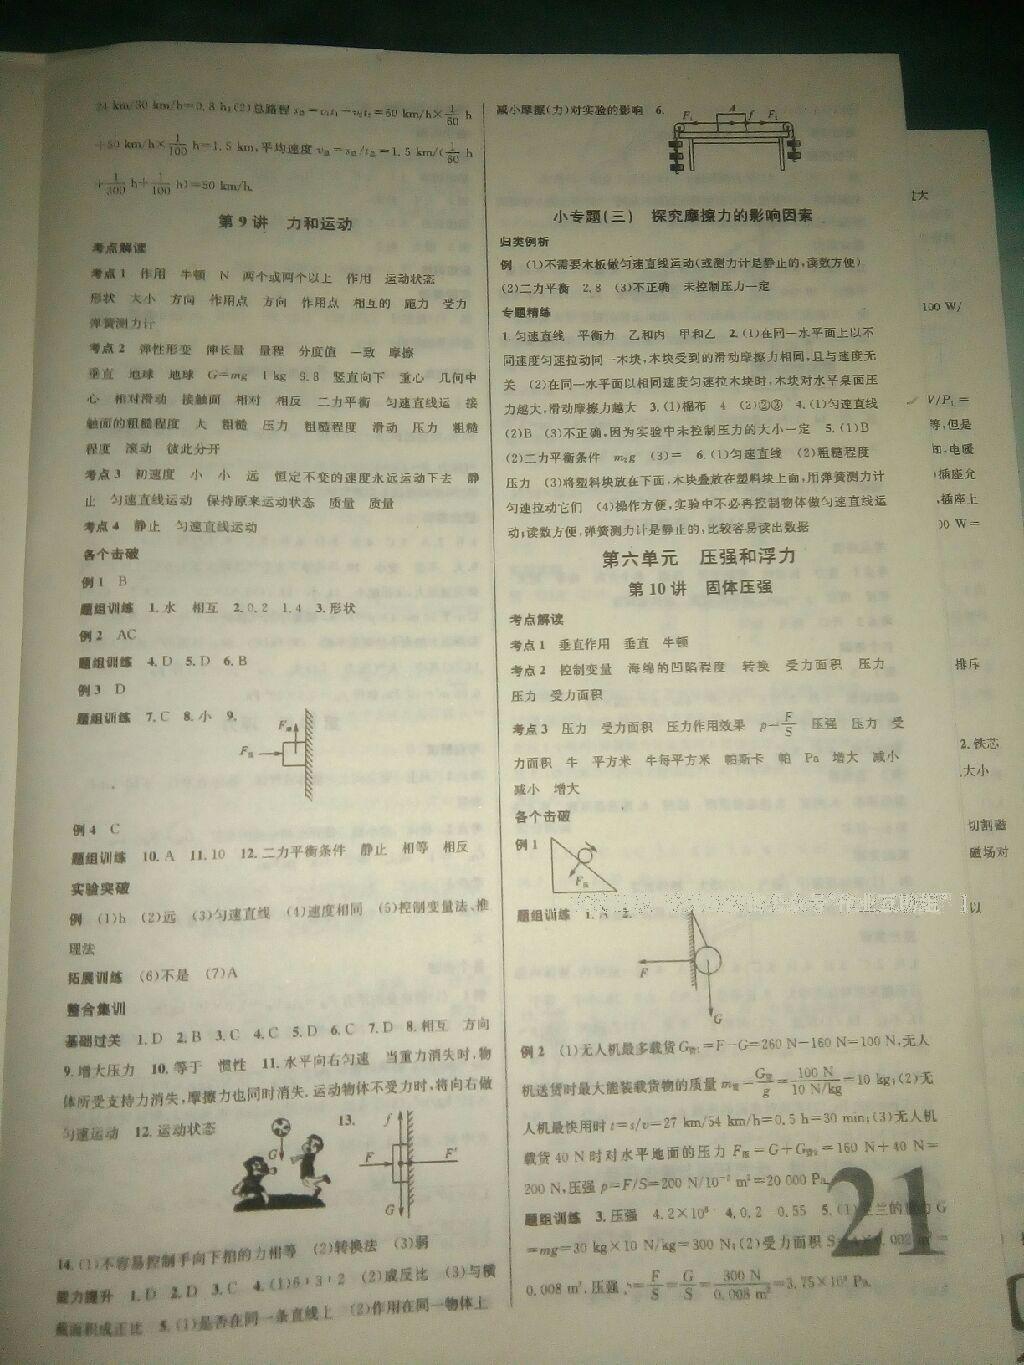 24 km/30 km/h=0.8 h;(2)总路程
+50 km/h×1/100 h=1.5 km,平均速度
h)=50 km/h.
第9讲 力和运动
考点解读
考点1 作用 牛顿 N 两个或两个以上 作用 运动状态
形状 大小 方向 作用点 方向 作用点 相互的 施力 受力
弹簧测力计
考点2 弹性形变 伸长量 量程 分度值 一致 摩擦
垂直 地球 地球 G=mg 1 kg 9.8 竖直向下 重心 几何中
心 相对滑动 接触面 相对 相反 二力平衡 匀速直线运 接
触面的粗糙程度 大 粗糙 压力 粗糙程度 滑动 压力 粗糙
程度 滚动 彼此分开
考点3 初速度 小 小 远 恒定不变的速度永远运动下去 静
止 匀速直线运动 保持原来运动状态 质量 质量
考点4 静止 匀速直线运动
各个击破
例1 B
题组训练 1.水 相互 2.0.2 1.4 3.形状
例2 AC
题组训练 4.D 5.D 6.B
例3 D
题组训练 7.C 8.小 9.
例4 C
题组训练 10.A 11.10 12.二力平衡条件 静止 相等 相反
实验突破
例 (1)h (2)远 (3)匀速直线 (4)速度相同 (5)控制变量法、推
理法
拓展训练 (6)不是 (7)A
整合集训
基础过关 1.D 2.B 3.C 4.C 5.D 6.C 7.D 8.相互 方向
9.增大压力 10.等于 惯性 11.水平向右匀速 当重力消失时,物
体所受支持力消失,摩擦力也同时消失.运动物体不受力时,将向右做
匀速运动 12.运动状态 G 13. f F F′ G
14.(1)不容易控制手向下拍的力相等 (2)转换法 (3)弱
能力提升 1.D 2.D 3.C 4.(1)6:3:2 (2)成反比 (3)与横
截面积成正比 5.(1)是否在同一条直线上 (2)作用在同一物体上
减小摩擦(力)对实验的影响 6. A f
小专题(三) 探究摩擦力的影响因素
归类例析
例 (1)不需要木板做匀速直线运动(或测力计是静止的,读数方便)
(2)二力平衡 2.8 (3)不正确 未控制压力一定
专题精练
1.匀速直线 平衡力 乙和丙 甲和乙 2.(1)在同一水平面上以不
同速度匀速拉动同一木块,木块受到的滑动摩擦力相同,且与速度无
关 (2)在同一水平面以相同速度匀速拉木块时,木块对水平桌面压
力越大,滑动摩擦力越大 3.(1)棉布 4 (2)②③ 4.(1)匀速直线
(2)B (3)不正确,因为实验中未控制压力的大小一定 5.(1)B
(2)二力平衡条件 m₂g (3)= 6.(1)匀速直线 (2)粗糙程度
压力 (3)将塑料块放在下面,木块叠放在塑料块上面,用弹簧测力计
匀速拉动它们 (4)操作方便,实验中不必再控制物体做匀速直线运
动;读数方便,弹簧测力计是静止的,比较容易读出数据
第六单元 压强和浮力
第10讲 固体压强
考点解读
考点1 垂直作用 垂直 牛顿
考点2 控制变量 海绵的凹陷程度 转换 受力面积 压力
压力 受力面积
考点3 压力 受力面积 压力作用效果 p=F/S 压强 压力 受
力面积 牛 平方米 牛每平方米 帕斯卡 帕 Pa 增大 减小
减小 增大
各个击破
例1 F压
题组训练
F G
例2 (1)无人机最多载货G货1=F-G=260 N-160 N=100 N,无人
机送货时最大能装载货物的质量m货=G货/g=100 N/10 N/kg=10 kg;(2)无
人机最快用时t=s/v=27 km/54 km/h=0.5 h=30 min;(3)无人机
载货40 N时对水平地面的压力F压=G+G货2=160 N+40 N=
200 N,压强p=F/S=200 N/10⁻² m²=20 000 Pa.
题组训练 3.压强 4.2×10⁶ 4.0.2 0.55
=mg=30 kg×10 N/kg=300 N;(2)受力面积
0.008 m²,压强p=F/S=G/S=300 N/0.008 m²=3.75×10⁴ Pa.
21
100 W/
V/P₁=
等,但是
插座上
00 W=
排斥
2.铁芯
大小
切割磁
磁场对
以